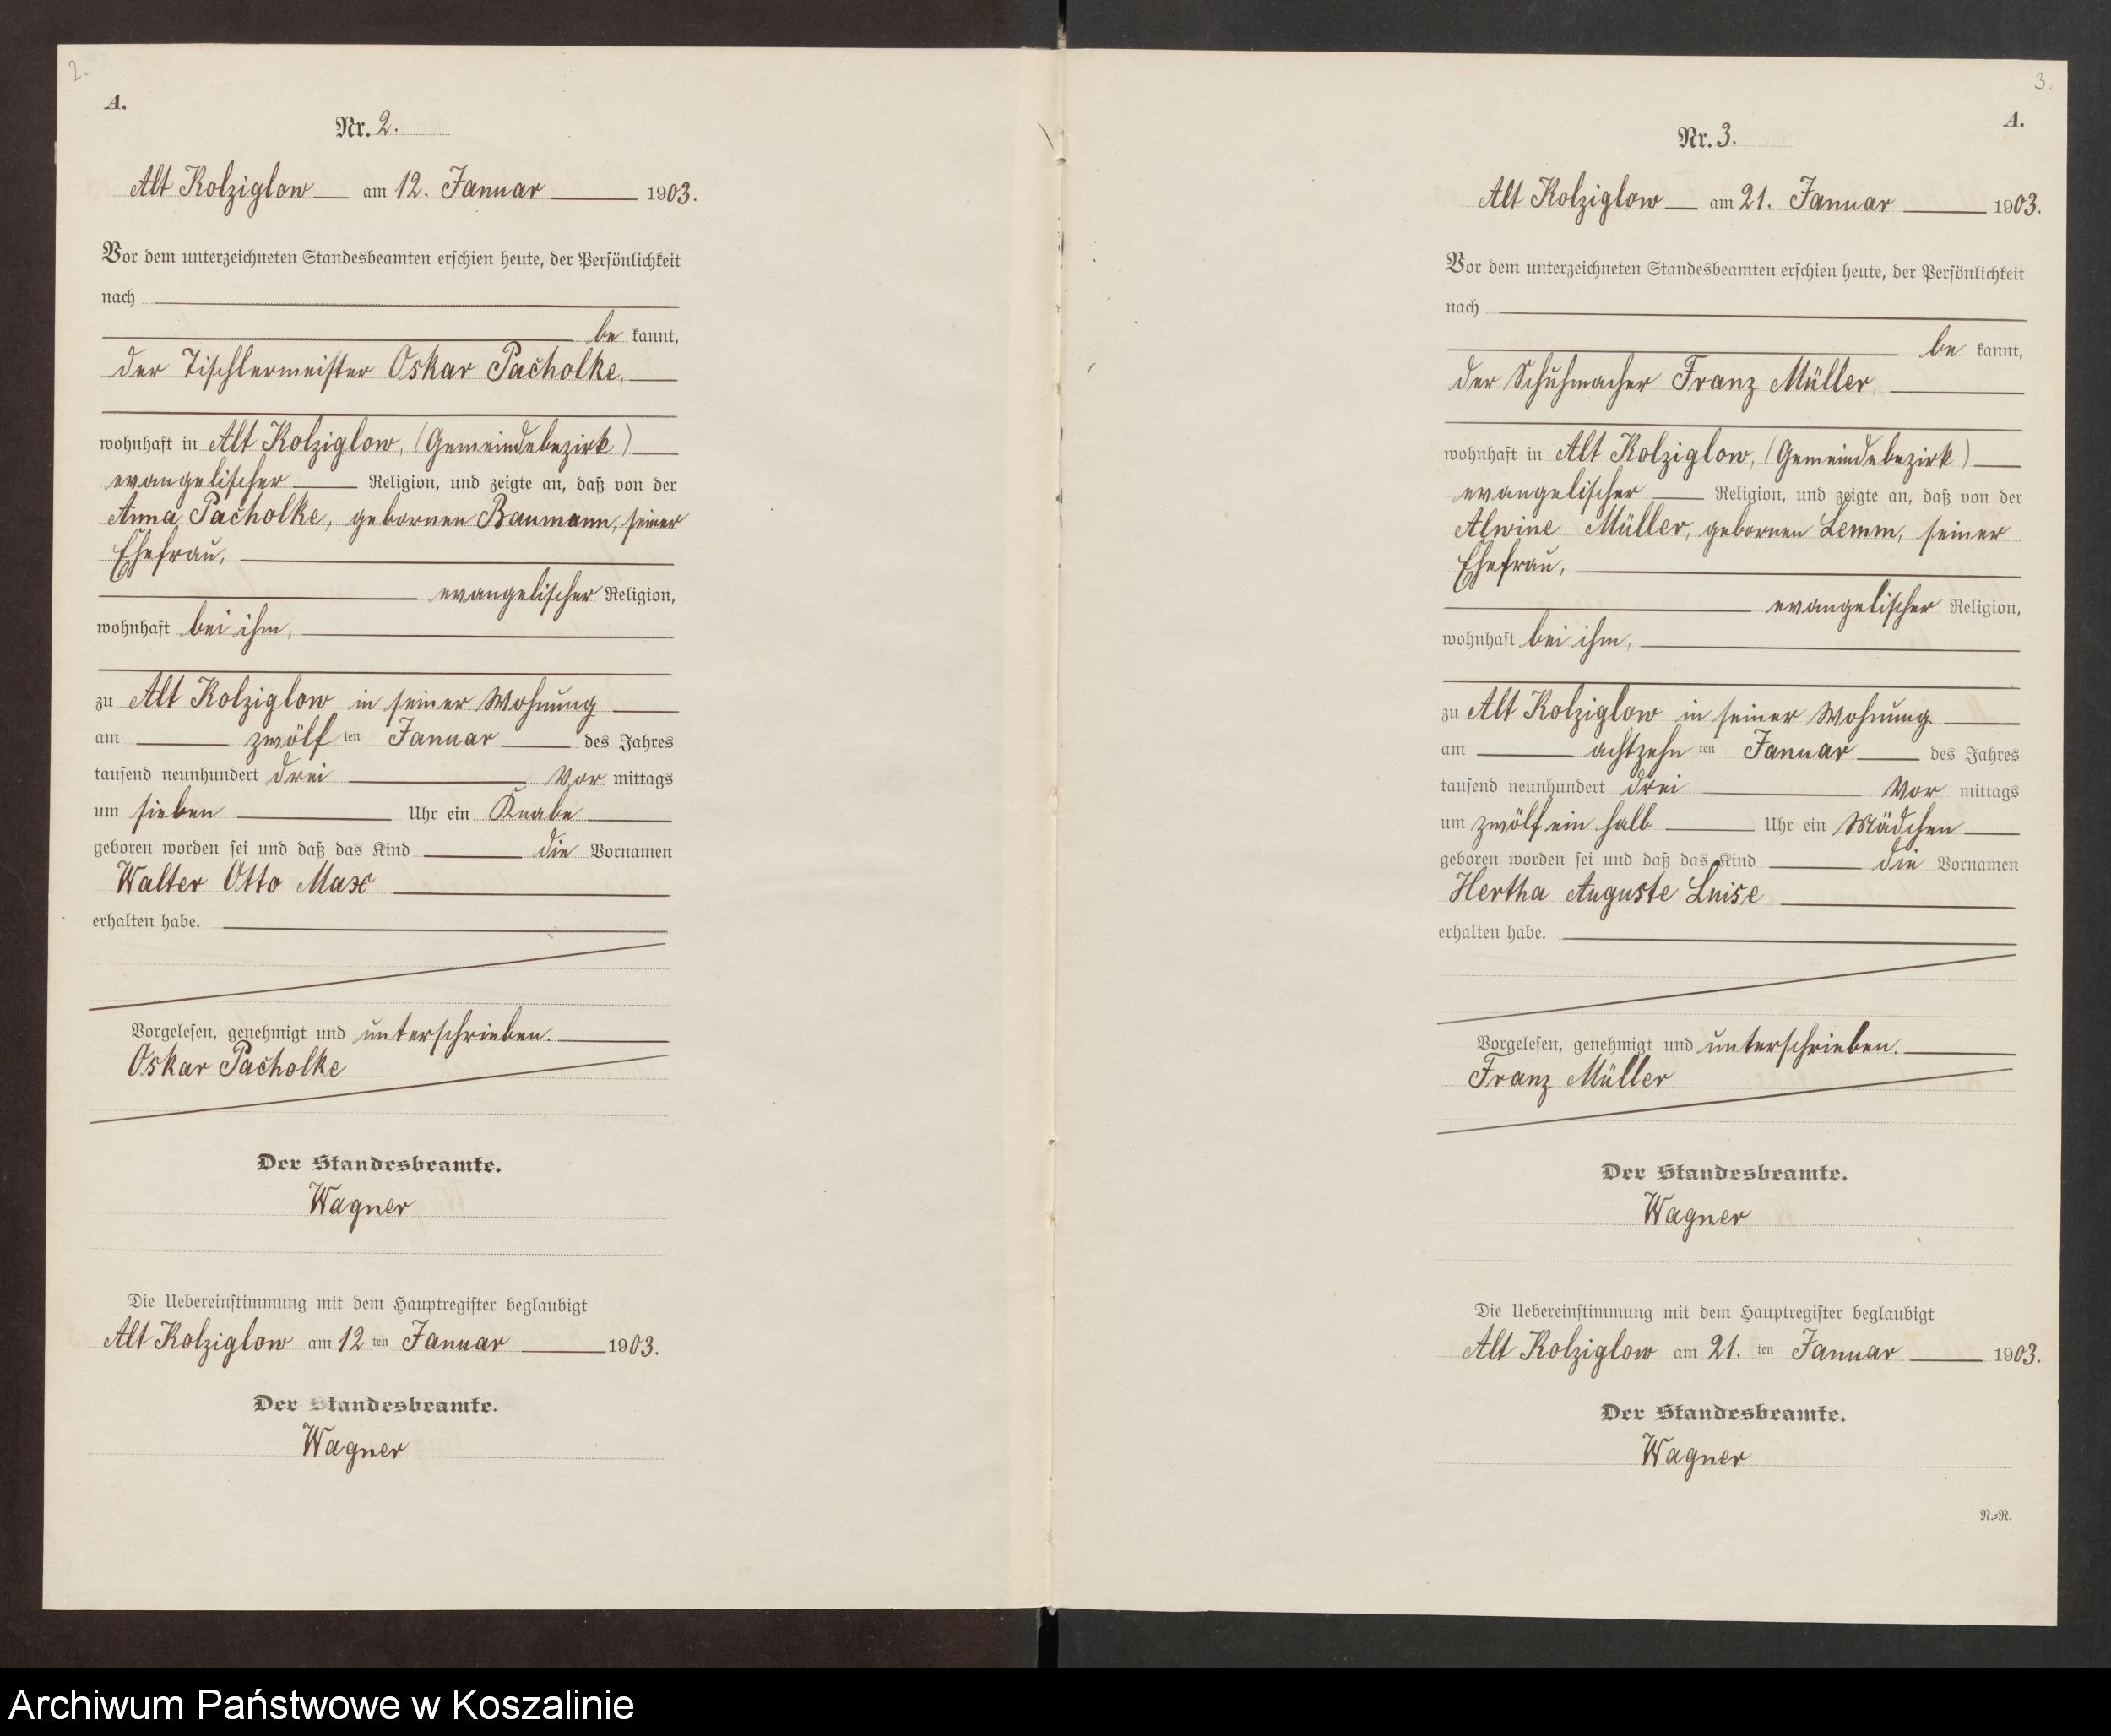 2.
A.
Nr. 2.
Alt Kolziglow am 12. Januar 1903.
Vor dem unterzeichneten Standesbeamten erschien heute, der Persönlichkeit
nach
be kannt,
der Tischlermeister Oskar Pacholke,
wohnhaft in Alt Kolziglow, (Gemeindebezirk)
evangelischer Religion, und zeigte an, daß von der
Anna Pacholke, gebornen Baumann, seiner
Ehefrau,
evangelischer Religion,
wohnhaft bei ihm,
zu Alt Kolziglow in seiner Wohnung
am zwölf ten Januar des Jahres
tausend neunhundert drei Vor mittags
um sieben Uhr ein Knabe
geboren worden sei und daß das Kind die Vornamen
Walter Otto Max
erhalten habe.
Vorgelesen, genehmigt und unterschrieben.
Oskar Pacholke
Der Standesbeamte.
Wagner
Die Uebereinstimmung mit dem Hauptregister beglaubigt
Alt Kolziglow am 12 ten Januar 1903.
Der Standesbeamte.
Wagner
3.
A.
Nr. 3.
Alt Kolziglow am 21. Januar 1903.
Vor dem unterzeichneten Standesbeamten erschien heute, der Persönlichkeit
nach
be kannt,
der Schuhmacher Franz Müller,
wohnhaft in Alt Kolziglow, (Gemeindebezirk)
evangelischer Religion, und zeigte an, daß von der
Alwine Müller, gebornen Lemm, seiner
Ehefrau,
evangelischer Religion,
wohnhaft bei ihm,
zu Alt Kolziglow in seiner Wohnung
am achtzehn ten Januar des Jahres
tausend neunhundert drei Vor mittags
um zwölf ein halb Uhr ein Mädchen
geboren worden sei und daß das Kind die Vornamen
Hertha Auguste Luise
erhalten habe.
Vorgelesen, genehmigt und unterschrieben.
Franz Müller
Der Standesbeamte.
Wagner
Die Uebereinstimmung mit dem Hauptregister beglaubigt
Alt Kolziglow am 21. ten Januar 1903.
Der Standesbeamte.
Wagner
N.=R.
Archiwum Państwowe w Koszalinie